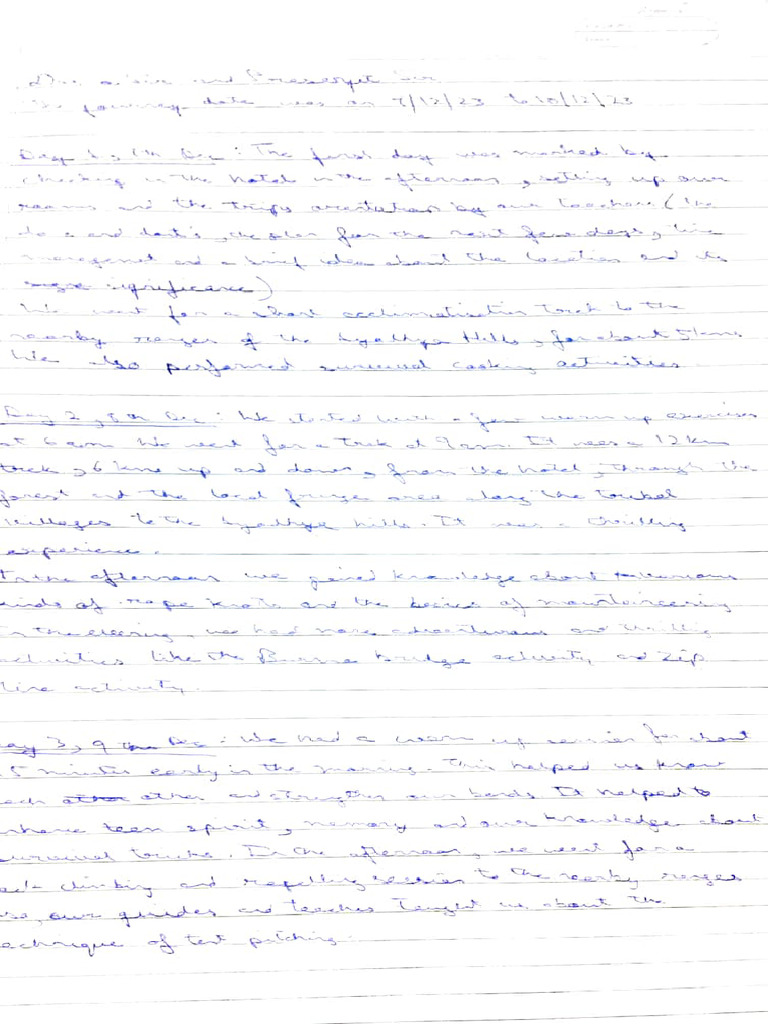 and
The journey date was on 7/12/23 to 10/12/23
Day 1, 7th Dec : The first day was marked by
checking in the hotel in the afternoon, setting up our
rooms and the trips orientation by our teachers (the
do's and dont's, the plan for the next few days, time
management and a brief idea about the location and its
significance)
We went for a short acclimatisation trek to the
nearby ranges of the Ayodhya Hills, for about 5 kms
We also performed survival cooking activities
Day 2, 8th Dec : We started with a few warm up exercises
at 6 am We went for a trek at 9 am. It was a 12 km
trek, 6 kms up and down, from the hotel, through the
forest and the land fringe area along the tribal
villages to the Ayodhya hills. It was a thrilling
experience.
In the afternoon we gained knowledge about various
kinds of rope knots and the basics of mountaineering
In the evening, we had more adventurous and thrilling
activities like the Burma bridge activity and zip
line activity.
Day 3, 9th Dec : We had a warm up session for about
minutes early in the morning. This helped us know
each other and strengthen our bonds It helped to
enhance team spirit, memory and our knowledge about
survival tricks. In the afternoon, we went for a
rock climbing and rapelling session to the nearby ranges
our guides and teachers taught us about the
technique of tent pitching.